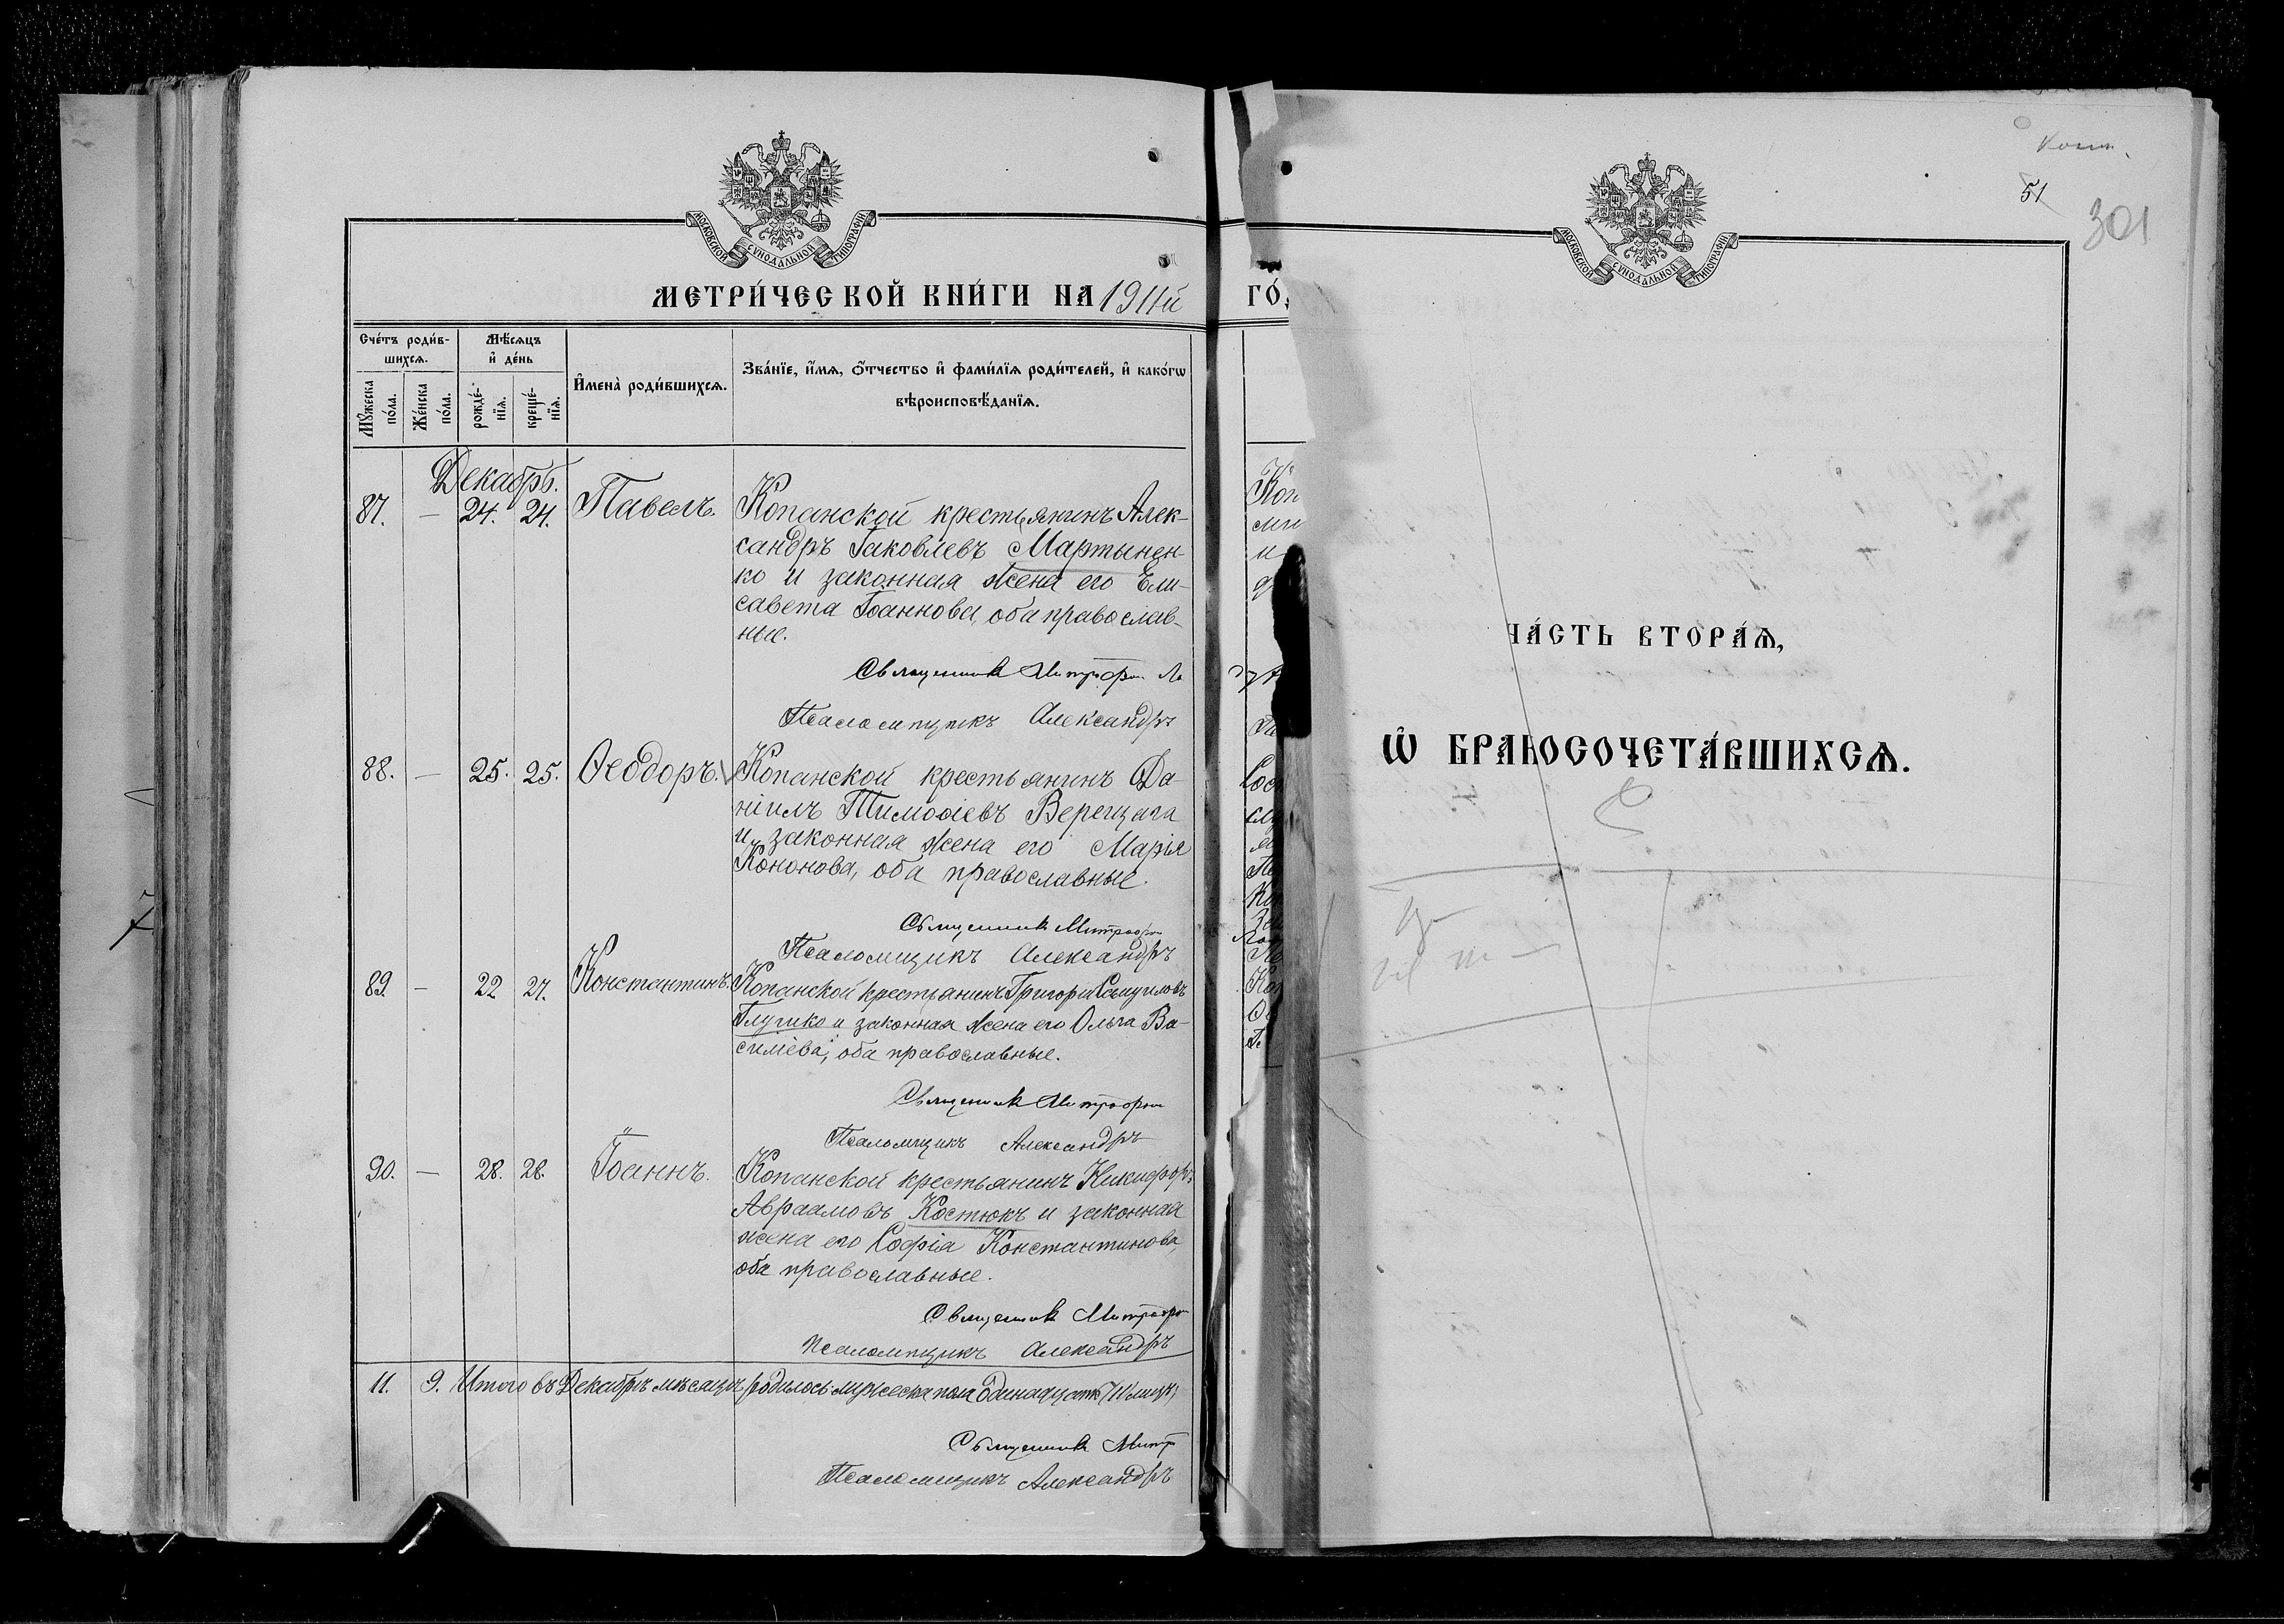 МОСКОВСКОЙ СУНОДАЛЬНОЙ ТИПОГРАФІИ
МЕТРИ́ЧЕСКОЙ КНИ́ГИ НА 191
Сче́тъ роди́в-
шихсѧ.
Мꙋ́жеска
по́ла.
Же́нска
по́ла.
Мѣ́сяцъ
и҆ де́нь
рожде́-
нїѧ.
креще́-
нїѧ.
И҆мена̀ роди́вшихсѧ.
Зва́нїе, и҆́мѧ, ѻ҆́тчество и҆ фами́лїѧ роди́телей, и҆ како́гѡ
вѣроисповѣ́данїѧ.
Декабрь.
87. — 24. 24. Павелъ. Копанской крестьянинъ Алек-
сандръ Іаковлевъ Мартынен-
ко и законная жена его Ели-
савета Іоаннова, оба православ-
ные.
Священник Митрофан
Псаломщикъ Александръ
88. — 25. 25. Ѳеодоръ. Копанской крестьянинъ Да-
ніилъ Тимоѳіевъ Верещага
и законная жена его Марія
Кононова, оба православные.
Священник Митрофан
Псаломщикъ Александръ
89. — 22 27. Константинъ. Копанской крестьянинъ Григорій Самуиловъ
и законная жена его Ольга Ва-
силіева, оба православные.
Священник Митрофан
Псаломщикъ Александръ
90. — 28. 28. Іоаннъ. Копанской крестьянинъ Никифоръ
Авраамовъ Костюкъ и законная
жена его Софія Константинова,
оба православные.
Священник Митрофан
Псаломщикъ Александръ
11. 9. Итого въ Декабрѣ мѣсяцѣ родилось мужеска пола одинадцать
Священник Митр
Псаломщикъ Александръ
ГО́
Коп
и
51
301
МОСКОВСКОЙ СУНОДАЛЬНОЙ ТИПОГРАФІИ
ЧА́СТЬ ВТОРА́Ѧ,
Ѡ҆ БРАКОСОЧЕТА́ВШИХСѦ.